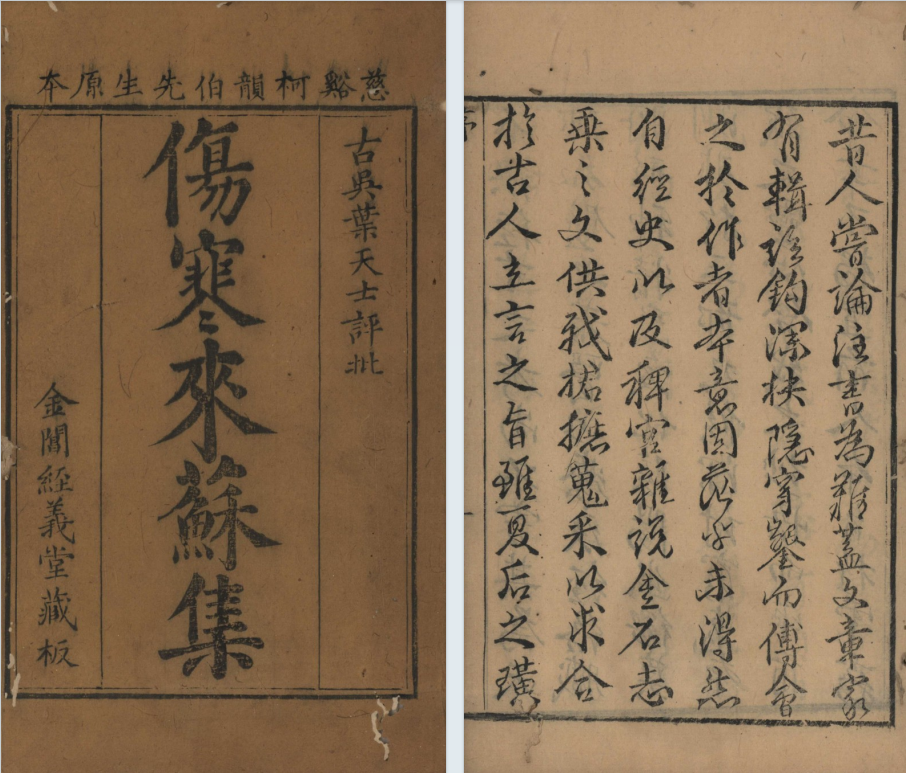 慈谿柯韻伯先生原本
古吳葉天士評批
傷寒來蘇集
金閶經義堂藏板
昔人嘗論注書為難蓋文章家
有輯詮鈎深抉隱穿鑿而傅會
之於作者本意固茫乎未得然
自經史以及稗官雜說金石志
乘之文供我捃摭蒐采以求合
於古人立言之旨雖夏后之璜